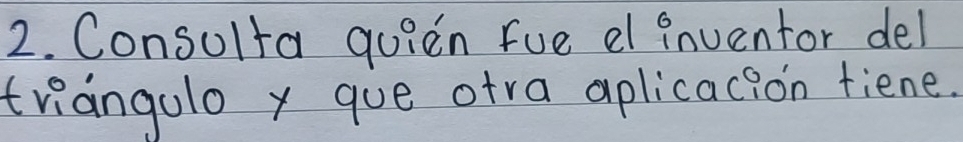 2. Consulta quién fue el inventor del
triángulo y que otra aplicación tiene.